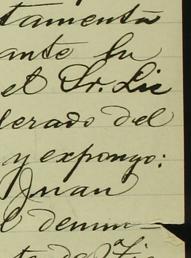 tamentá
ante su
el Sr. Lic
lerado del
y expongo:
Juan
l denun-